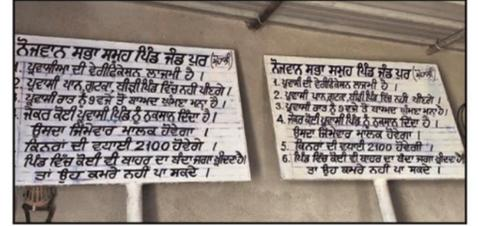 ਨੌਜਵਾਨ ਸਭਾ ਸਮੂਹ ਪਿੰਡ ਜੰਡ ਪੁਰ (ਮੁਹਾਲੀ)
1. ਪ੍ਰਵਾਸੀਆ ਦੀ ਵੇਰੀਫਿਕੇਸ਼ਨ ਲਾਜਮੀ ਹੈ ।
2. ਪ੍ਰਵਾਸੀ ਪਾਨ, ਗੁਟਕਾ, ਬੀੜੀ ਪਿੰਡ ਵਿੱਚ ਨਹੀ ਪੀਣਗੇ ।
3. ਪ੍ਰਵਾਸੀ ਰਾਤ ਨੂੰ 9 ਵਜੇ ਤੋਂ ਬਾਅਦ ਘੁੰਮਣਾ ਮਨਾ ਹੈ ।
ਜੇਕਰ ਕੋਈ ਪ੍ਰਵਾਸੀ ਪਿੰਡ ਨੂੰ ਨੁਕਸਾਨ ਦਿੰਦਾ ਹੈ ।
ਉਸਦਾ ਜਿੰਮੇਵਾਰ ਮਾਲਕ ਹੋਵੇਗਾ ।
ਕਿਨਰਾਂ ਦੀ ਵਧਾਈ 2100 ਹੋਵੇਗੀ ।
ਪਿੰਡ ਵਿੱਚ ਕੋਈ ਵੀ ਬਾਹਰ ਦਾ ਬੰਦਾ ਜਗਾ ਖ਼ਰੀਦਦਾ ਹੈ
ਤਾਂ ਉਹ ਕਮਰੇ ਨਹੀਂ ਪਾ ਸਕਦੇ ।
ਨੌਜਵਾਨ ਸਭਾ ਸਮੂਹ ਪਿੰਡ ਜੰਡ ਪੁਰ (ਮੁਹਾਲੀ)
1. ਪ੍ਰਵਾਸੀ ਦੀ ਵੇਰੀਫਿਕੇਸ਼ਨ ਲਾਜਮੀ ਹੈ ।
2. ਪ੍ਰਵਾਸੀ ਪਾਨ, ਗੁਟਕਾ, ਬੀੜੀ ਪਿੰਡ ਵਿੱਚ ਨਹੀ ਪੀਣਗੇ ।
3. ਪ੍ਰਵਾਸੀ ਰਾਤ ਨੂੰ 9 ਵਜੇ ਤੋਂ ਬਾਅਦ ਘੁੰਮਣਾ ਮਨਾ ਹੈ ।
4. ਜੇਕਰ ਕੋਈ ਪ੍ਰਵਾਸੀ ਪਿੰਡ ਨੂੰ ਨੁਕਸਾਨ ਦਿੰਦਾ ਹੈ ।
ਉਸਦਾ ਜਿੰਮੇਵਾਰ ਮਾਲਕ ਹੋਵੇਗਾ ।
5. ਕਿਨਰਾਂ ਦੀ ਵਧਾਈ 2100 ਹੋਵੇਗੀ ।
6. ਪਿੰਡ ਵਿੱਚ ਕੋਈ ਵੀ ਬਾਹਰ ਦਾ ਬੰਦਾ ਜਗਾ ਖ਼ਰੀਦਦਾ ਹੈ
ਤਾਂ ਉਹ ਕਮਰੇ ਨਹੀਂ ਪਾ ਸਕਦੇ ।